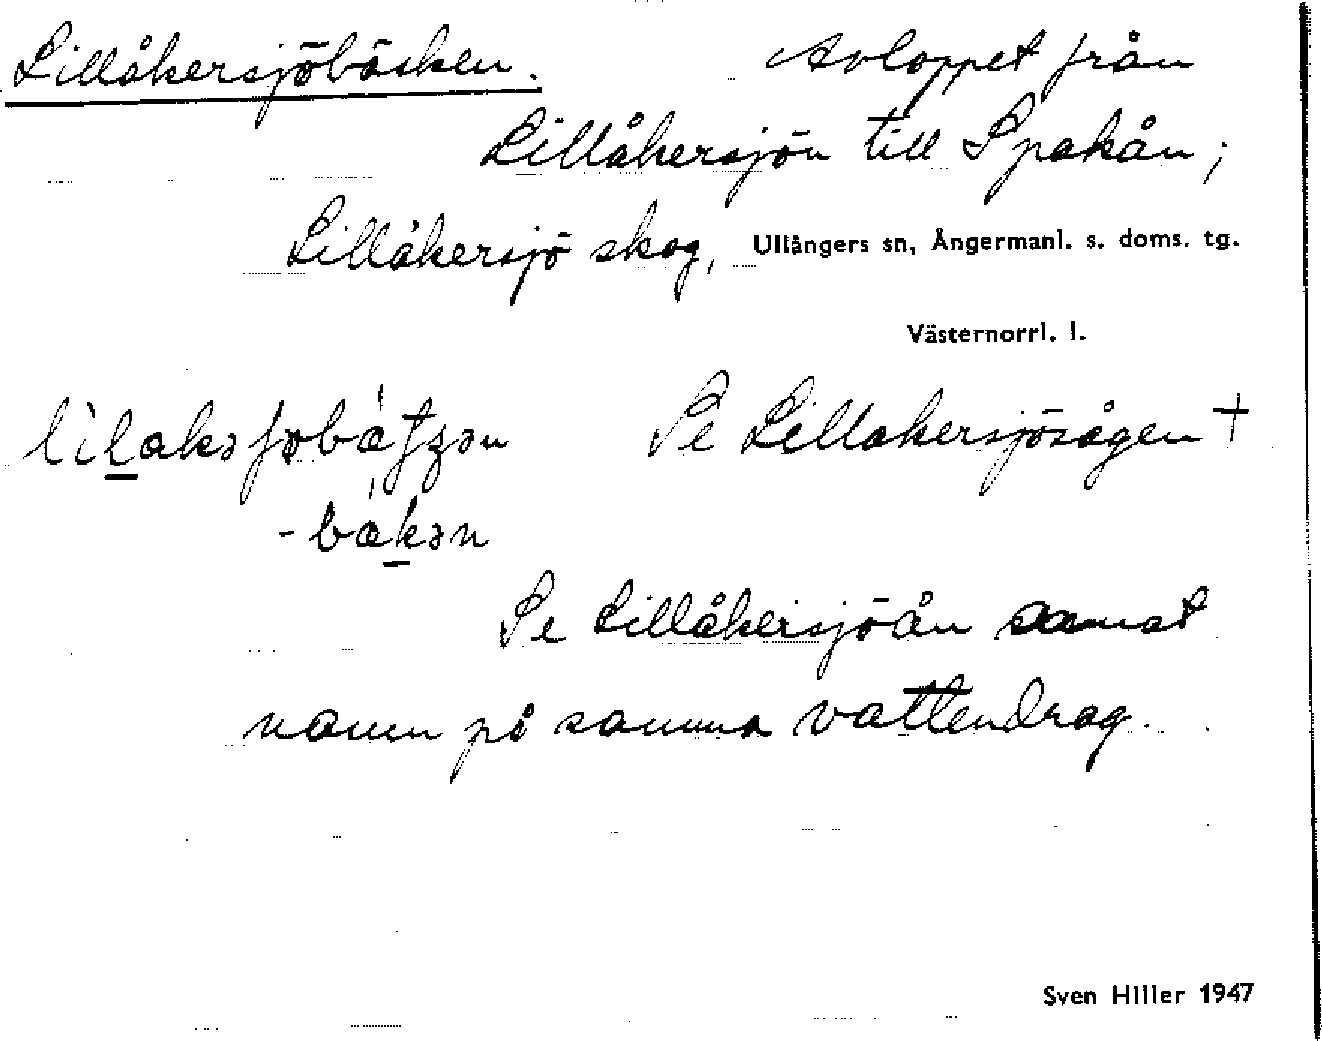 Lillåkersjöbäcken. Avloppet från
Lillåkersjön till Spakån;
Lillåkersjö skog, Ullångers sn, Ångermanl. s. doms. tg.
Västernorrl. l.
Se Lillåkersjösågen †
Se Lillåkersjöån annat
namn på samma vattendrag.
Sven Hiller 1947